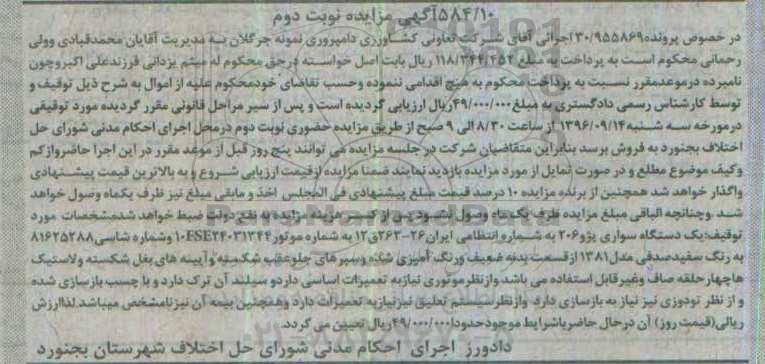 ۵۸۴/۱۰آگهی مزایده نوبت دوم
در خصوص پرونده۳۰/۹۵۵۸۶۹ اجرائی آقای شرکت تعاونی کشاورزی دامپروری نمونه جرگلان به مدیریت آقایان محمدقبادی وولی
رحمانی محکوم است به پرداخت به مبلغ ۱۱۸/۳۴۴/۴۵۲ ریال بابت اصل خواسته درحق محکوم له میثم یزدانی فرزندعلی اکبروچون
نامبرده درموعدمقرر نسبت به پرداخت محکوم به هیچ اقدامی ننموده وحسب تقاضای خودمحکوم علیه از اموال به شرح ذیل توقیف و
توسط کارشناس رسمی دادگستری به مبلغ ۴۹/۰۰۰/۰۰۰ریال ارزیابی گردیده است و پس از سیر مراحل قانونی مقرر گردیده مورد توقیفی
درمورخه سه شنبه۱۳۹۶/۰۹/۱۴ از ساعت ۸/۳۰ الی ۹ صبح از طریق مزایده حضوری نوبت دوم درمحل اجرای احکام مدنی شورای حل
اختلاف بجنورد به فروش برسد بنابراین متقاضیان شرکت در جلسه مزایده می توانند پنج روز قبل از موعد مقرر در این اجرا حاضروازکم
وکیف موضوع مطلع و در صورت تمایل از مورد مزایده بازدید نمایند ضمنا مزایده ازقیمت ارزیابی شروع و به بالاترین قیمت پیشنهادی
واگذار خواهد شد همچنین از برنده مزایده ۱۰ درصد قیمت مبلغ پیشنهادی فی المجلس اخذ و مابقی مبلغ نیز ظرف یکماه وصول خواهد
شد .وچنانچه الباقی مبلغ مزایده ظرف یک ماه وصول نشود پس از کسر هزینه مزایده به نفع دولت ضبط خواهد شدمشخصات مورد
توقیف:یک دستگاه سواری پژو۲۰۶ به شماره انتظامی ایران۲۶-۲۶۳ق۱۲ به شماره موتور ۱۰FSE۲۴۰۳۱۳۴۴ وشماره شاسی۸۱۶۲۵۲۸۸
به رنگ سفیدصدفی مدل۱۳۸۱ ازقسمت بدنه ضعیف ورنگ آمیزی شده وسپرهای جلوعقب شکسته وآیینه های بغل شکسته ولاستیک
هاچهارحلقه صاف وغیرقابل استفاده می باشد وازنظرموتوری نیازبه تعمیرات اساسی داردو سیلند آن ترک دارد و با چسب بازسازی شده
و از نظر تودوزی نیز نیاز به بازسازی دارد وازنظرسیستم تعلیق نیزنیازبه تعمیرات دارد وهمچنین بیمه آن نیزنامشخص میباشد.لذاارزش
ریالی(قیمت روز) آن درحال حاضرباشرایط موجودحدودا۴۹/۰۰۰/۰۰۰ریال تعیین می گردد.
دادورز اجرای احکام مدنی شورای حل اختلاف شهرستان بجنورد